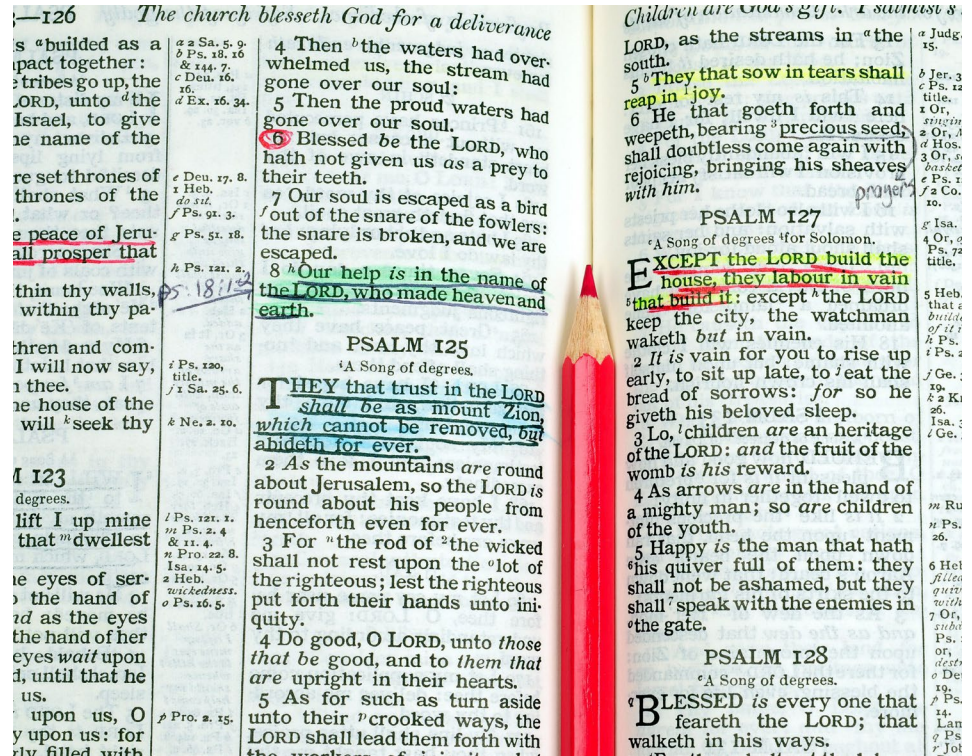 —126
The church blesseth God for a deliverance
s ᵃbuilded as a
pact together:
e tribes go up, the
ORD, unto ᵈthe
Israel, to give
ne name of the
re set thrones of
thrones of the
e peace of Jeru-
all prosper that
thin thy walls,
within thy pa-
thren and com-
I will now say,
thee.
he house of the
will ᵏseek thy
M 123
degrees.
lift I up mine
that ᵐdwellest
he eyes of ser-
the hand of
nd as the eyes
the hand of her
eyes wait upon
d, until that he
us.
upon us, O
y upon us: for
ly filled with
a 2 Sa. 5. 9.
b Ps. 18. 16
& 144. 7.
c Deu. 16.
16.
d Ex. 16. 34.
e Deu. 17. 8.
1 Heb.
do sit.
f Ps. 91. 3.
g Ps. 51. 18.
h Ps. 121. 2.
i Ps. 120,
title.
j 1 Sa. 25. 6.
k Ne. 2. 10.
l Ps. 121. 1.
m Ps. 2. 4
& 11. 4.
n Pro. 22. 8.
Isa. 14. 5.
2 Heb.
wickedness.
o Ps. 16. 5.
p Pro. 2. 15.
4 Then ᵇthe waters had over-
whelmed us, the stream had
gone over our soul:
5 Then the proud waters had
gone over our soul.
6 Blessed be the LORD, who
hath not given us as a prey to
their teeth.
7 Our soul is escaped as a bird
ᶠout of the snare of the fowlers:
the snare is broken, and we are
escaped.
8 ʰOur help is in the name of
the LORD, who made heaven and
earth.
PSALM 125
ⁱA Song of degrees.
THEY that trust in the LORD
shall be as mount Zion,
which cannot be removed, but
abideth for ever.
2 As the mountains are round
about Jerusalem, so the LORD is
round about his people from
henceforth even for ever.
3 For ⁿthe rod of ²the wicked
shall not rest upon the ᵒlot of
the righteous; lest the righteous
put forth their hands unto ini-
quity.
4 Do good, O LORD, unto those
that be good, and to them that
are upright in their hearts.
5 As for such as turn aside
unto their ᵖcrooked ways, the
LORD shall lead them forth with
Children are God's gift.
LORD, as the streams in ᵃthe
south.
5 ᵇThey that sow in tears shall
reap in ¹joy.
6 He that goeth forth and
weepeth, bearing ³precious seed,
shall doubtless come again with
rejoicing, bringing his sheaves
with him.
prayers
PSALM 127
ᶜA Song of degrees ⁴for Solomon.
EXCEPT the LORD build the
house, they labour in vain
⁵that build it: except ʰthe LORD
keep the city, the watchman
waketh but in vain.
2 It is vain for you to rise up
early, to sit up late, to ʲeat the
bread of sorrows: for so he
giveth his beloved sleep.
3 Lo, ˡchildren are an heritage
of the LORD: and the fruit of the
womb is his reward.
4 As arrows are in the hand of
a mighty man; so are children
of the youth.
5 Happy is the man that hath
⁶his quiver full of them: they
shall not be ashamed, but they
shall ⁷speak with the enemies in
ᵒthe gate.
PSALM 128
ᶜA Song of degrees.
BLESSED is every one that
feareth the LORD; that
walketh in his ways.
a Judg.
15.
b Jer. 3
c Ps. 12
title.
1 Or,
2 Or,
d Hos.
3 Or,
basket
e Ps. 1
f 2 Co
10.
g Isa.
4 Or,
Ps. 72,
title.
5 Heb.
that
of it
h Ps.
i Ps. 2
j Ge. 3
19.
k 2
26.
Isa.
l Ge.
m Ru
n Ps.
26.
6 Heb
filled
with
7 Or,
Ps.
or,
o Deu
19.
p Ps.
14.
Lam
q Ps